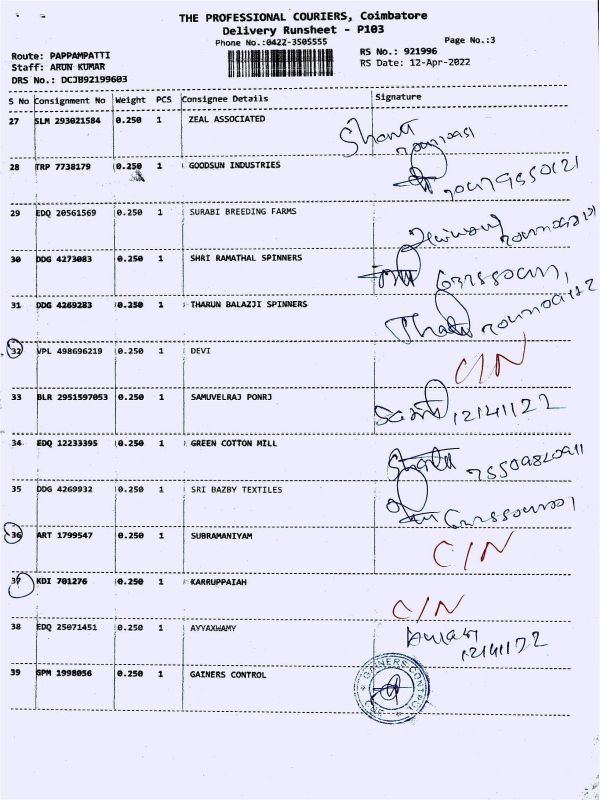 THE PROFESSIONAL COURIERS, Coimbatore
Delivery Runsheet - P103
Phone No.:0422-3505555
Page No.:3
Route: PAPPAMPATTI
RS No.: 921996
Staff: ARUN KUMAR
RS Date: 12-Apr-2022
DRS No.: DCJB92199603
S No Consignment No Weight PCS Consignee Details Signature
27 SLM 293021584 0.250 1 ZEAL ASSOCIATED
28 TRP 7738179 0.250 1 GOODSUN INDUSTRIES
29 EDQ 20561569 0.250 1 SURABI BREEDING FARMS
30 DDG 4273083 0.250 1 SHRI RAMATHAL SPINNERS
31 DDG 4269283 0.250 1 THARUN BALAZJI SPINNERS
32 VPL 498696219 0.250 1 DEVI C/N
33 BLR 2951597053 0.250 1 SAMUVELRAJ PONRJ 12/4/22
34 EDQ 12233395 0.250 1 GREEN COTTON MILL
35 DDG 4269932 0.250 1 SRI BAZBY TEXTILES
36 ART 1799547 0.250 1 SUBRAMANIYAM C/N
37 KDI 701276 0.250 1 KARRUPPAIAH C/N
38 EDQ 25071451 0.250 1 AYYAXWAMY 12/4/22
39 GPM 1998056 0.250 1 GAINERS CONTROL
GAINERS CONTROL